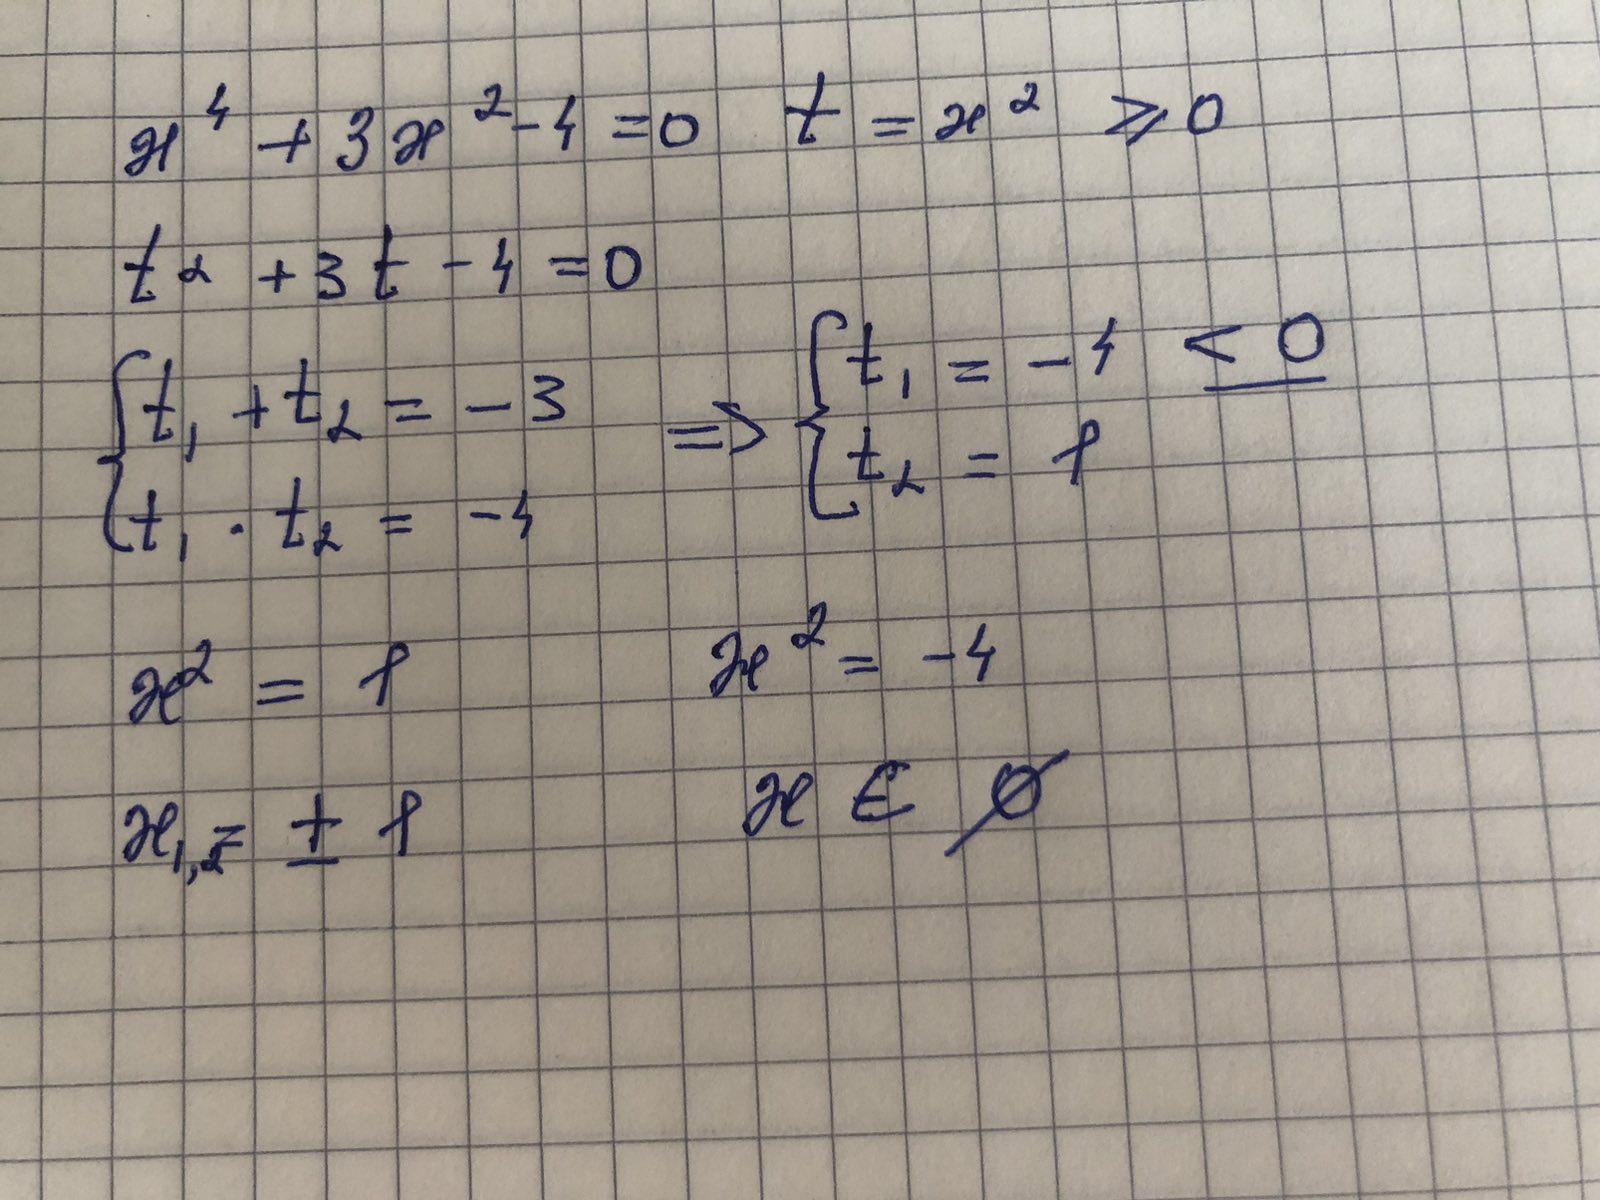 x⁴ + 3x² - 4 = 0 t = x² ⩾ 0
t² + 3t - 4 = 0
{ t₁ + t₂ = -3
t₁ · t₂ = -4
=> { t₁ = -4 < 0
t₂ = 1
x² = 1 x² = -4
x₁,₂ = ± 1 x ∈ ∅